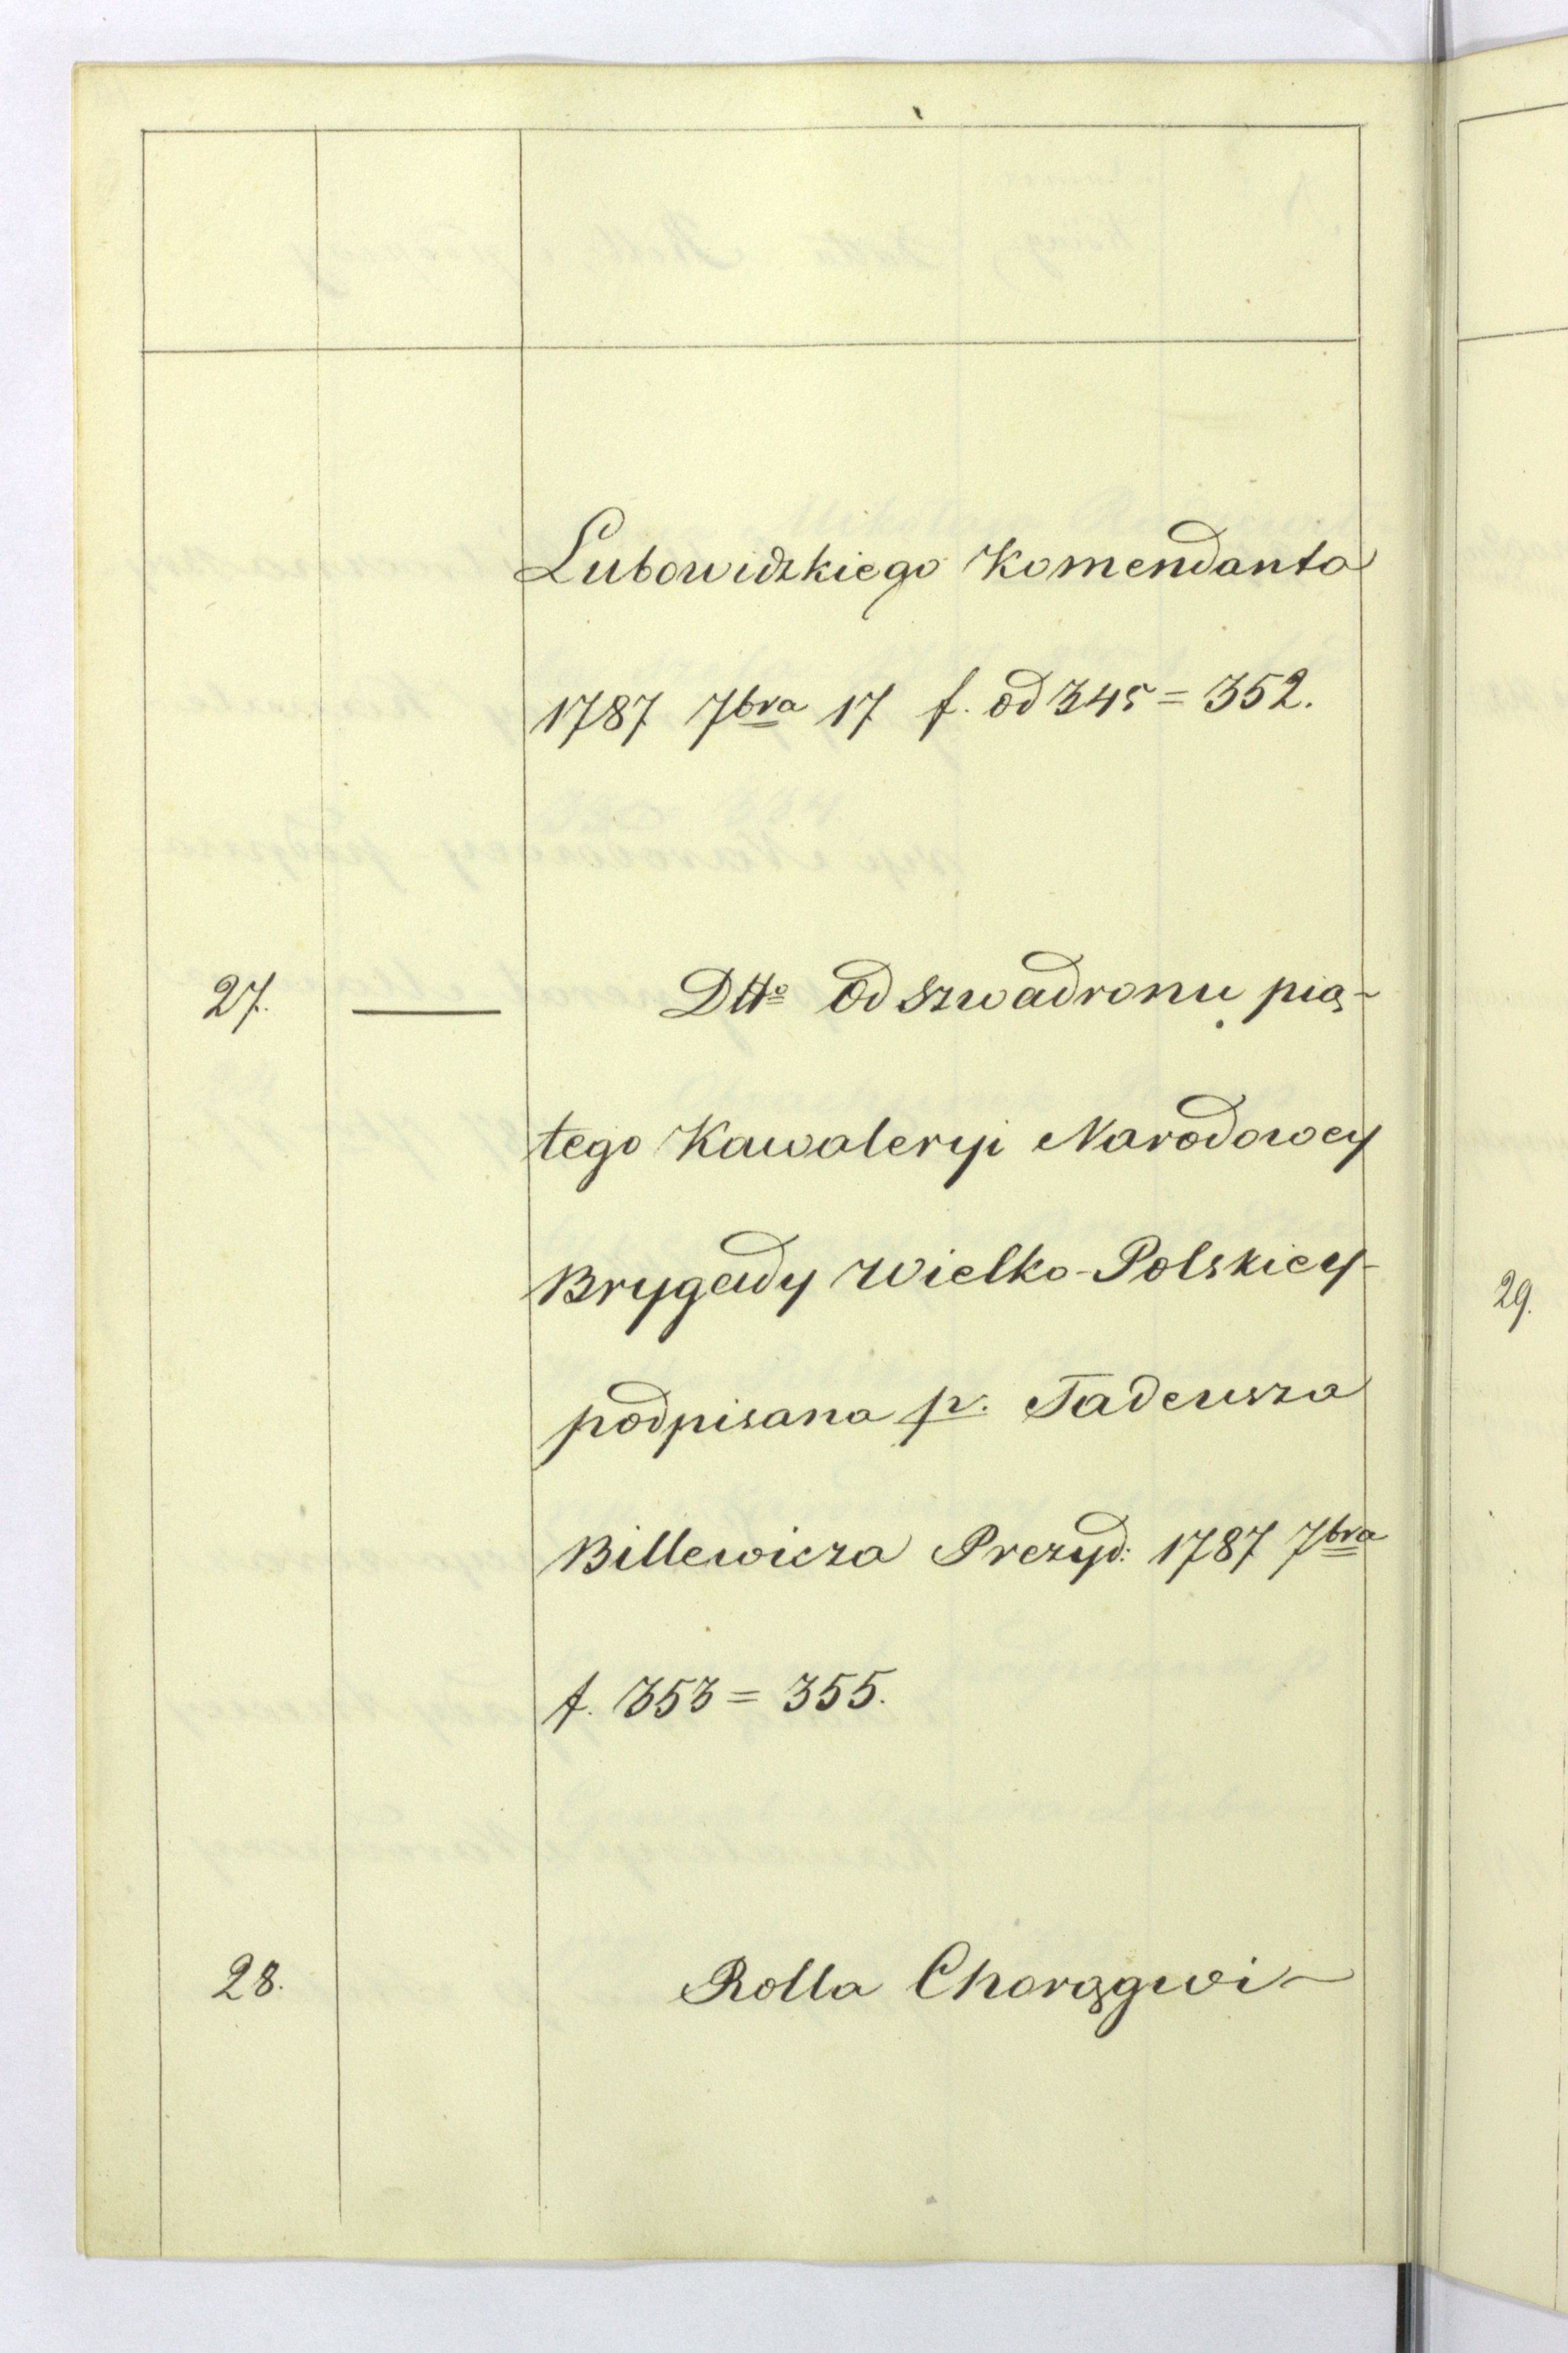 Lubowidzkiego Komendanta
1787 7bra 17 f. od 345 = 352.
27. — Dtto od szwadronu pią-
tego Kawaleryi Narodowey
Brygady Wielko-Polskiey
podpisana p. Tadeusza
Billewicza Prezyd: 1787 7bra
f. 353 = 355.
28. Rolla Chorągwi -
29.